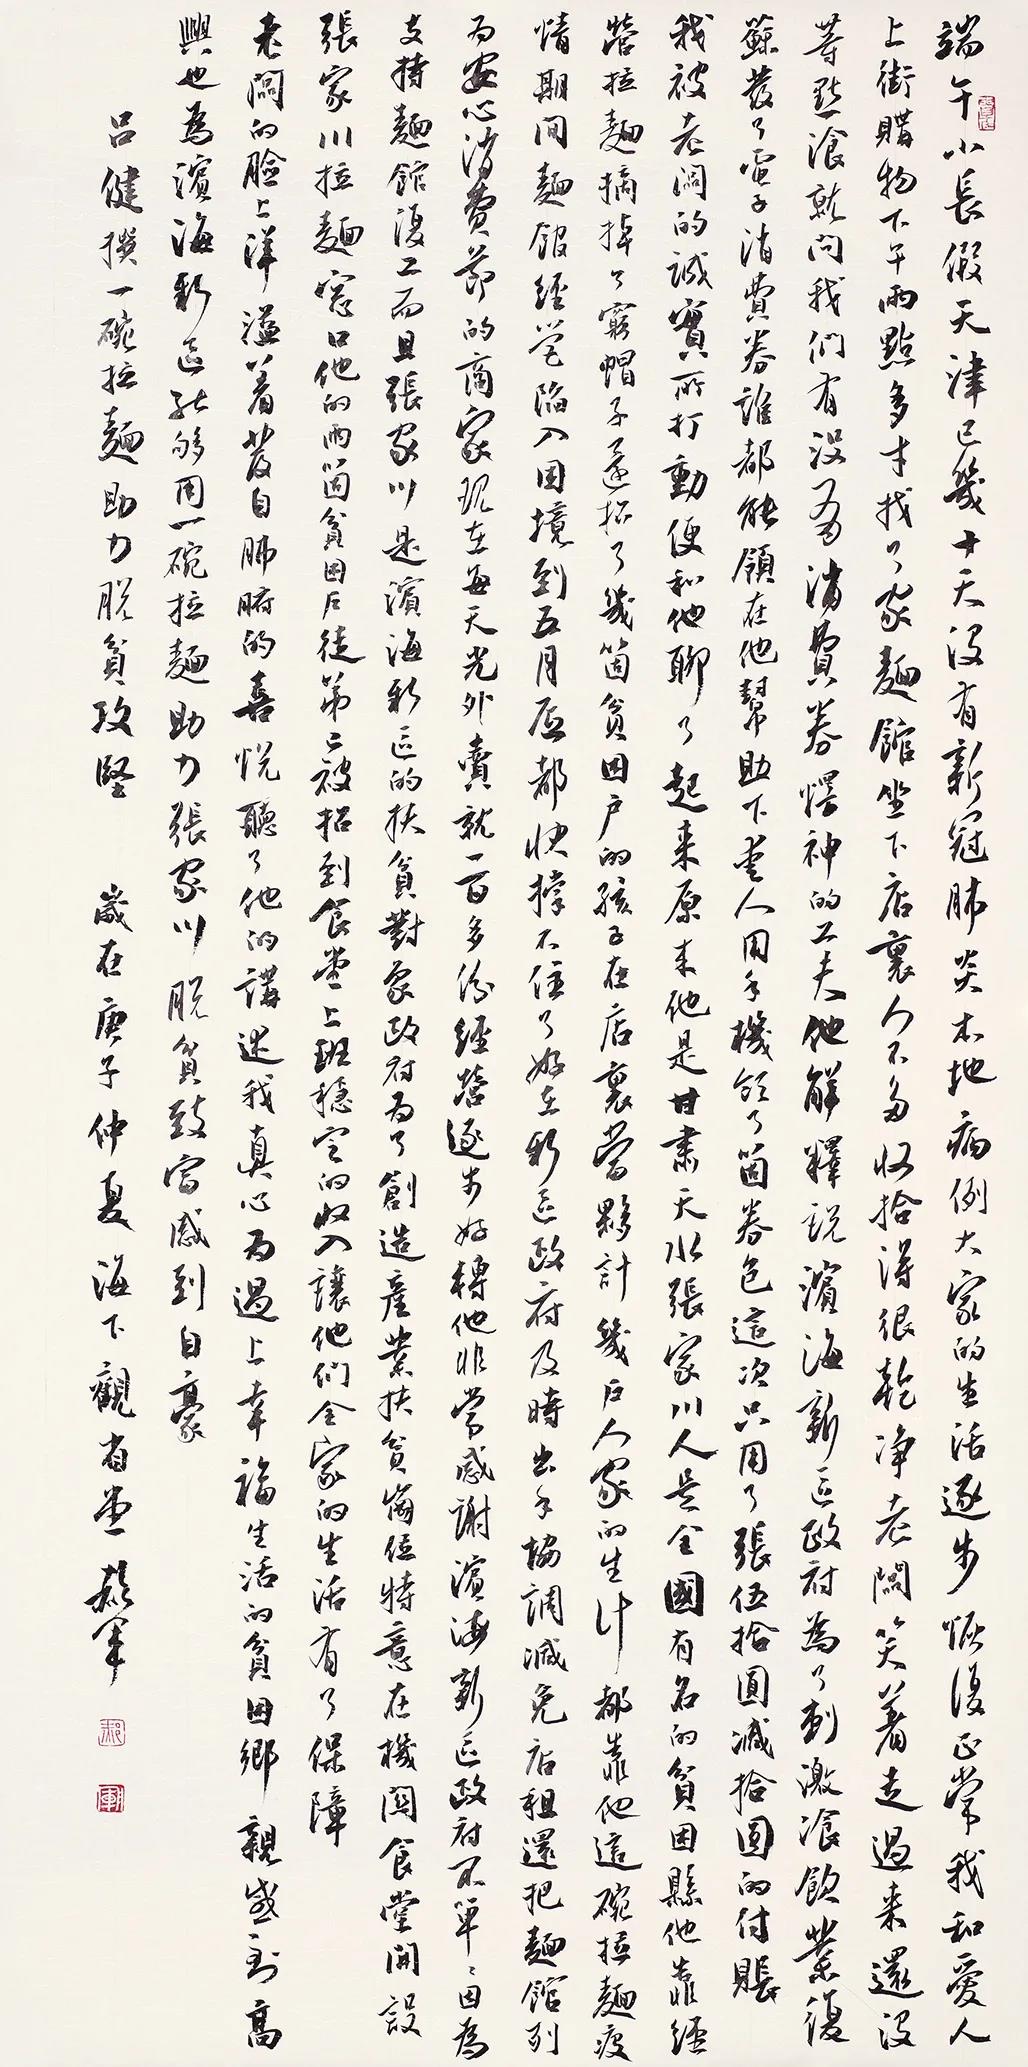 端午小長假天津已幾十天没有新冠肺炎本地病例大家的生活逐步恢復正常我和愛人
上街購物下午兩點多才找了家麵館坐下店裏人不多收拾得很乾净老闆笑着走過来還没
等點飡就問我們有没有消費券愣神的工夫他解釋説濱海新區政府為了刺激飡飲業復
蘇發了電子消費券誰都能領在他幫助下愛人用手機領了箇券包這次只用了張伍拾圓減拾圓的付賬
我被老闆的誠實所打動便和他聊了起来原来他是甘肅天水張家川人是全國有名的貧困縣他靠經
營拉麵摘掉了窮帽子還招了幾箇貧困户的孩子在店裏當夥計幾户人家的生计都靠他這碗拉麵疫
情期间麵館經營陷入困境到五月底都快撑不住了好在新區政府及時出手協調減免店租還把麵館列
为安心消費節的商家現在每天光外賣就一百多份經營逐步好轉他非常感謝濱海新區政府不單單因為
支持麵館復工而且張家川是濱海新區的扶貧對象政府为了創造産業扶貧崗位特意在機關食堂開設
張家川拉麵窓口他的兩箇貧困户徒弟已被招到食堂上班穩定的収入讓他們全家的生活有了保障
老闆的臉上洋溢着發自肺腑的喜悦聽了他的講述我真心为過上幸福生活的貧困鄉親感到高
興也為濱海新區能够用一碗拉麵助力張家川脱貧致富感到自豪
吕健撰一碗拉麵助力脱貧攻堅 歲在庚子仲夏海下觀省堂 軍